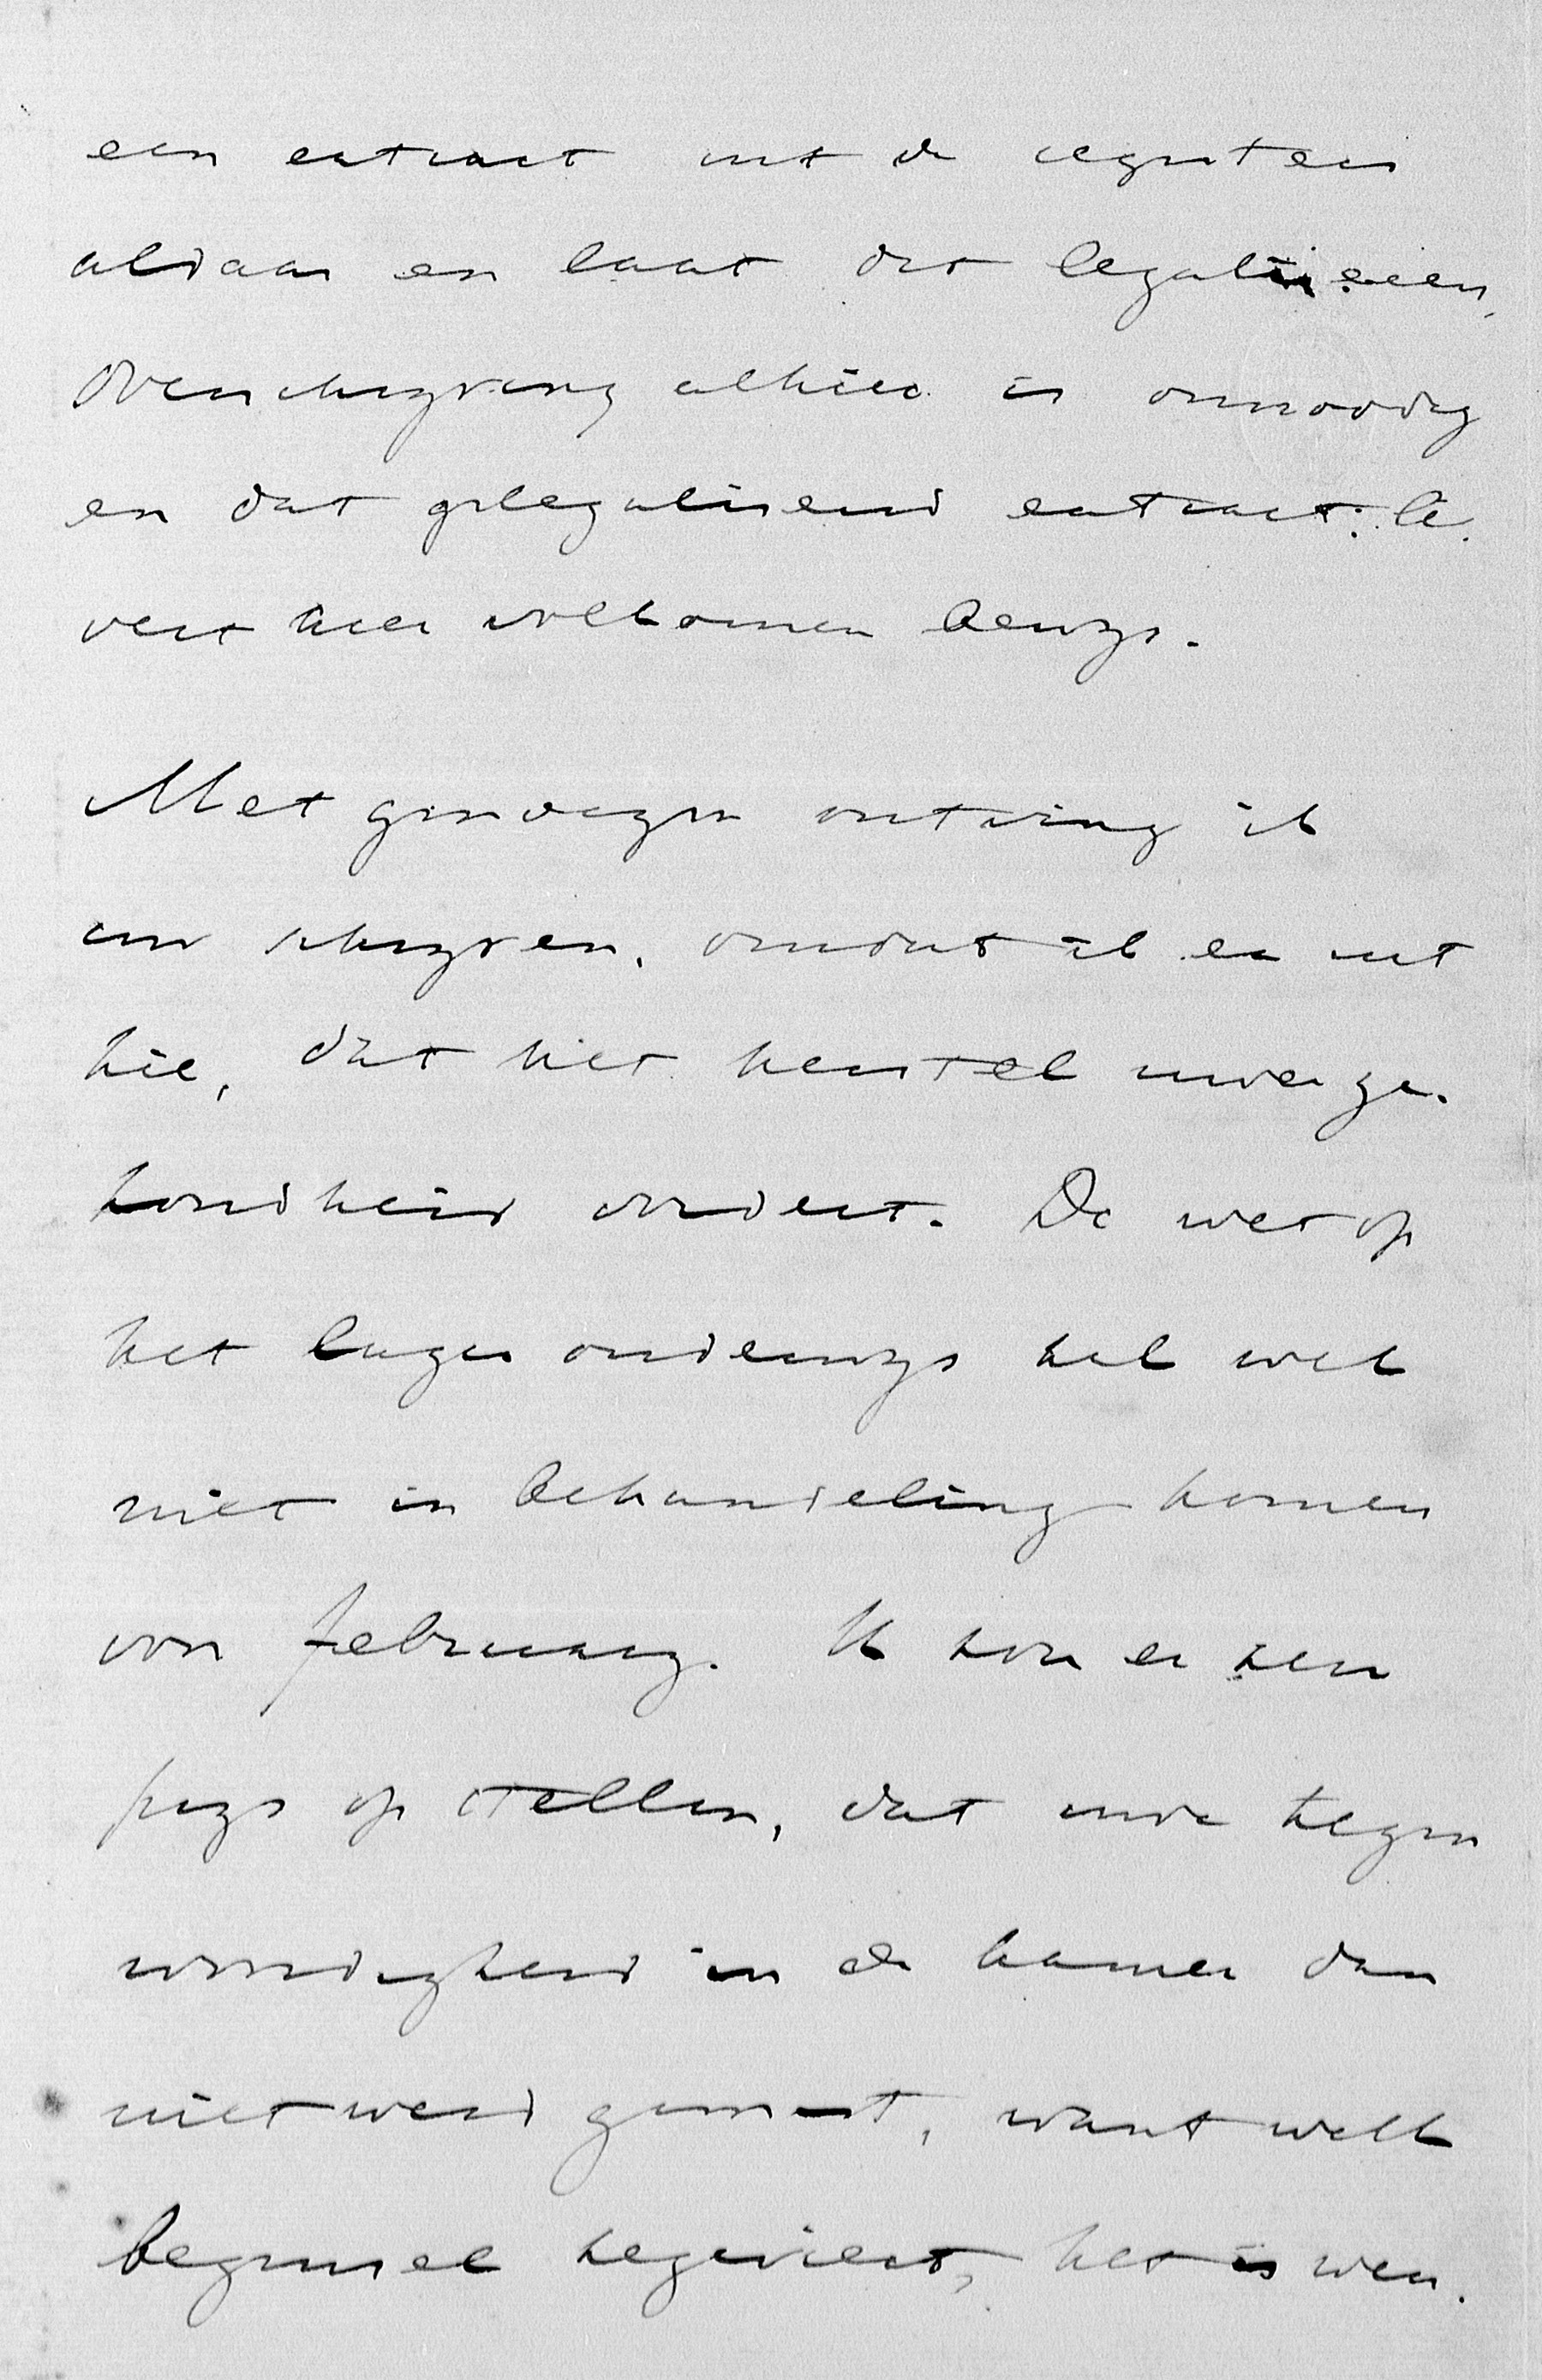 een extract uit de registers
aldaar en laat dit legaliseeren,
Overschrijving alhier is onnoodig
en dat gelegaliseerd extract le-
vert hier volkomen bewijs.
Met genoegen ontving ik
uw schrijven, omdat ik er uit
zie, dat het herstel uwer ge-
zondheid vordert. De wet op
het lager onderwijs zal wel
niet in behandeling komen
voor February. Ik zou er zeer
prijs op stellen, dat uwe tegen
woordigheid in de kamer dan
niet werd gemist, want welk
beginsel zegeviert, het is wen-